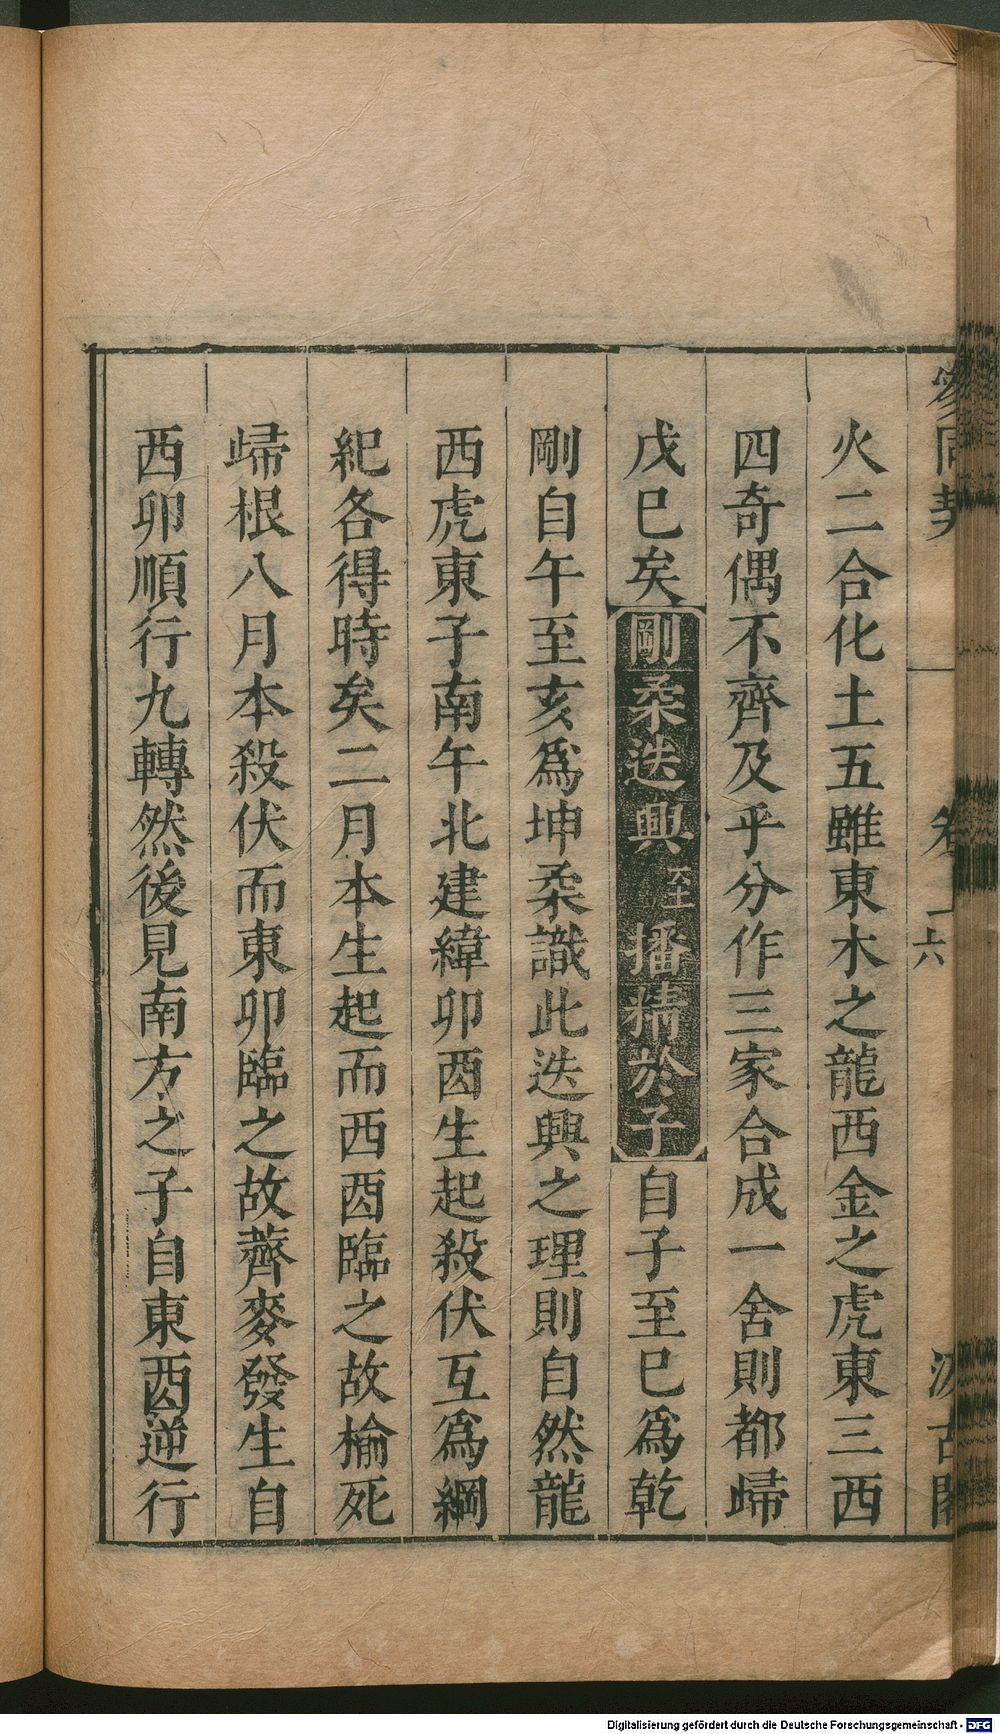 參同契 卷 六 汲古閣
火二合化土五雖東木之龍西金之虎東三西
四奇偶不齊及乎分作三家合成一舍則都歸
戊巳矣剛柔迭興至播精於子自子至巳為乾
剛自午至亥為坤柔識此迭興之理則自然龍
西虎東子南午北建緯卯酉生起殺伏互為綱
紀各得時矣二月本生起而西酉臨之故榆死
歸根八月本殺伏而東卯臨之故薺麥發生自
西卯順行九轉然後見南方之子自東酉逆行
Digitalisierung gefördert durch die Deutsche Forschungsgemeinschaft - DFG